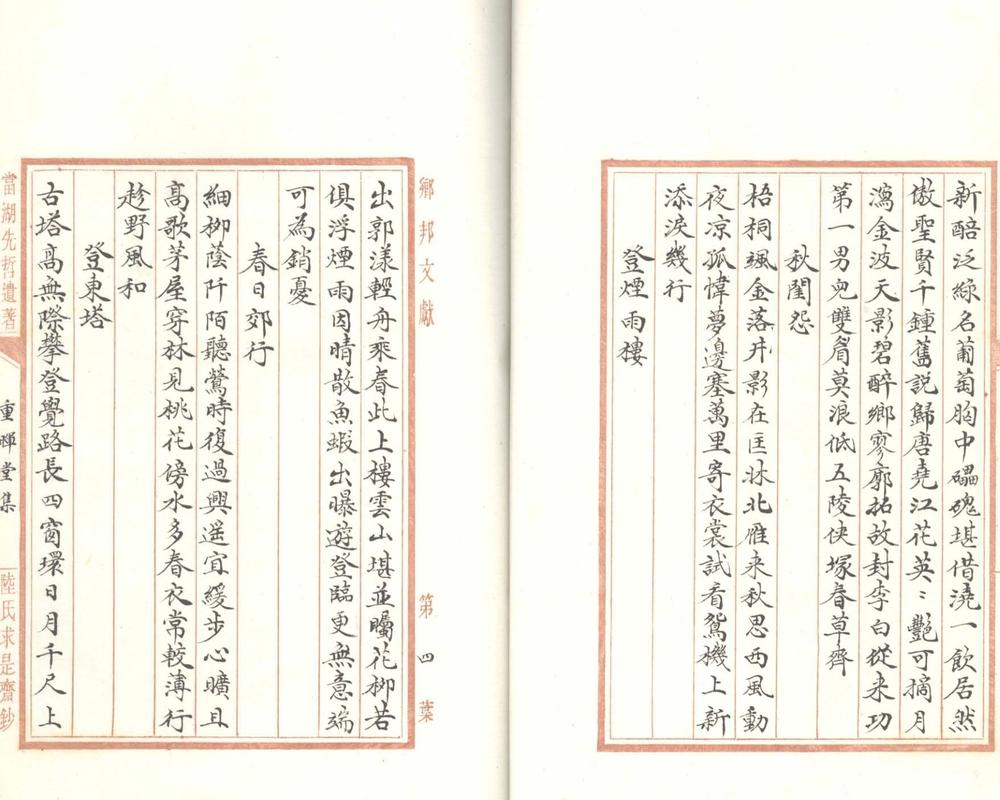 新醅泛綠名葡萄胸中礧磈堪借澆一飲居然
傲聖賢千鍾舊說歸唐堯江花英〻艷可摘月
瀉金波天影碧醉鄉寥廓拓故封李白從来功
第一男兒雙眉莫浪低五陵俠塚春草齊
秋閨怨
梧桐颯金落井影在匡牀北雁来秋思西風動
夜凉孤幃夢邊塞萬里寄衣裳試看鴛機上新
添淚幾行
登煙雨樓
鄉邦文獻
第四葉
出郭漾輕舟乘春此上樓雲山堪並矚花柳若
俱浮煙雨因晴散魚蝦出曝遊登臨更無意端
可為銷憂
春日郊行
細柳蔭阡陌聽鶯時復過興遥宜緩步心曠且
高歌茅屋穿林見桃花傍水多春衣常較薄行
趁野風和
登東塔
古塔高無際攀登覺路長四窗環日月千尺上
當湖先哲遺著
重暉堂集
陸氏求是齋鈔